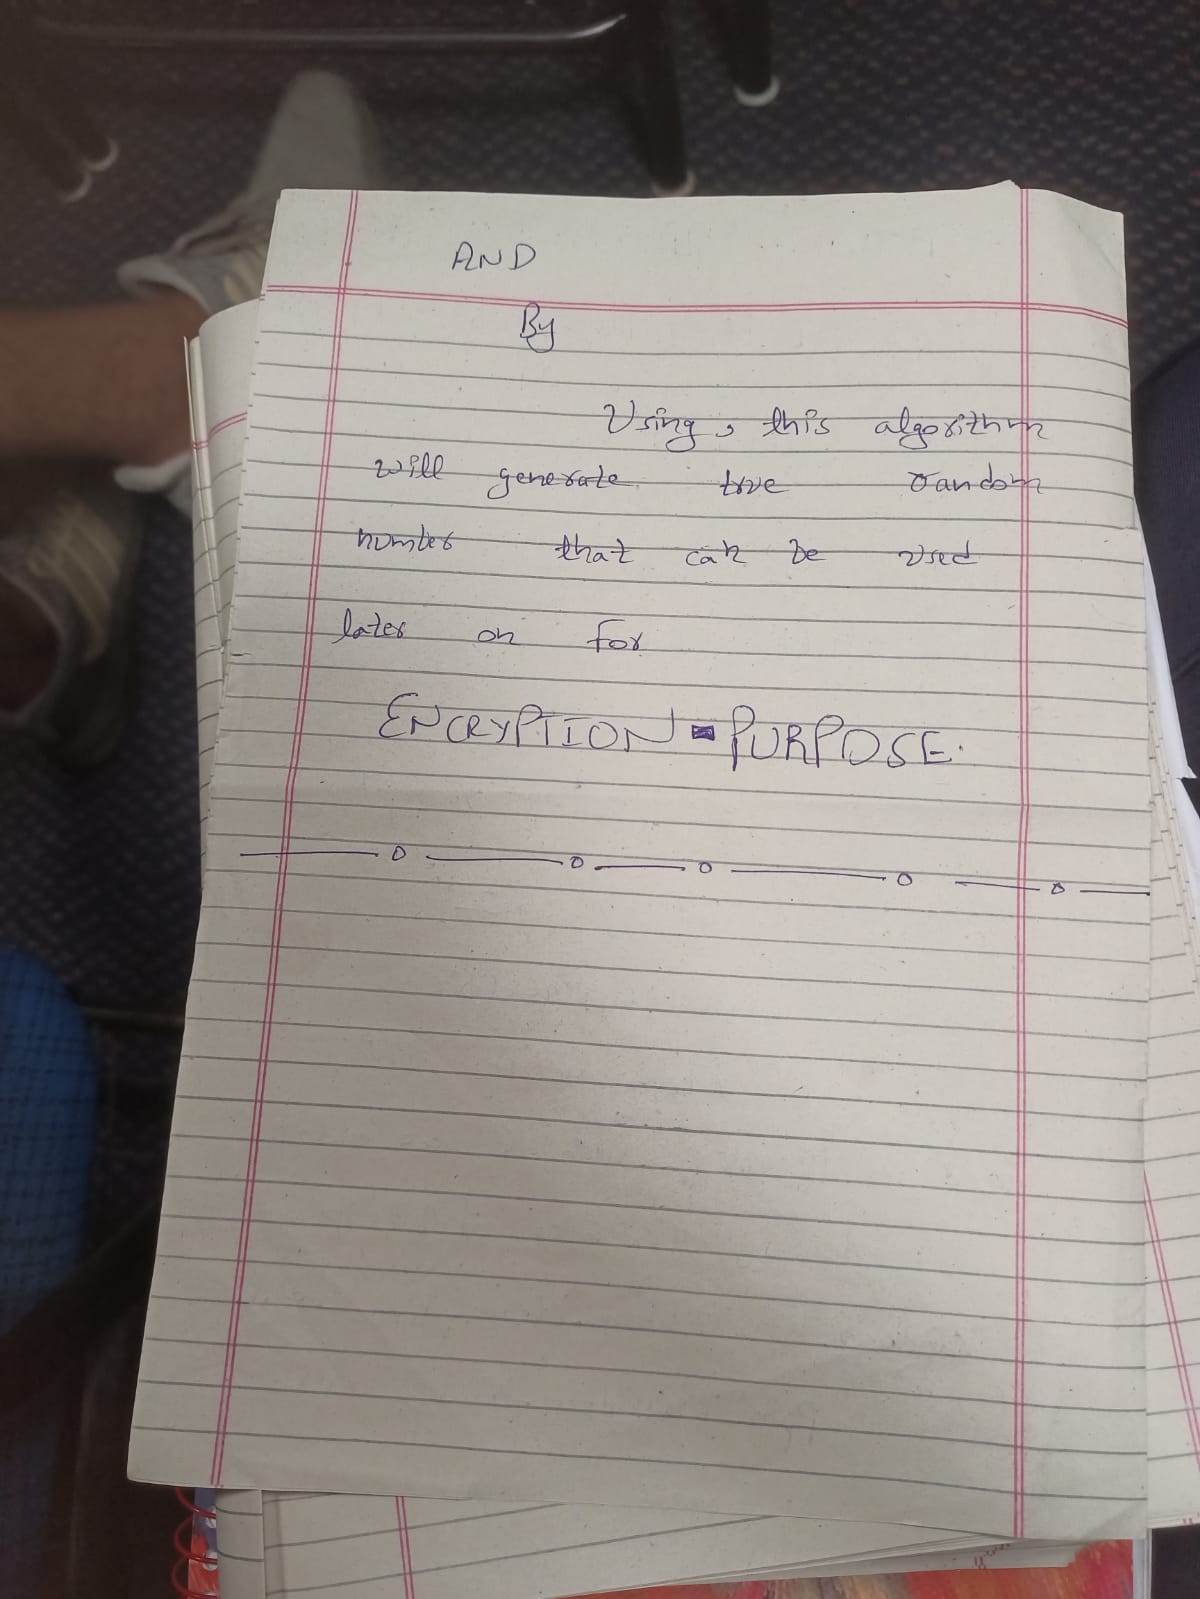 AND
By
Using, this algorithm
will generate true random
number that can be used
later on for
ENCRYPTION - PURPOSE.